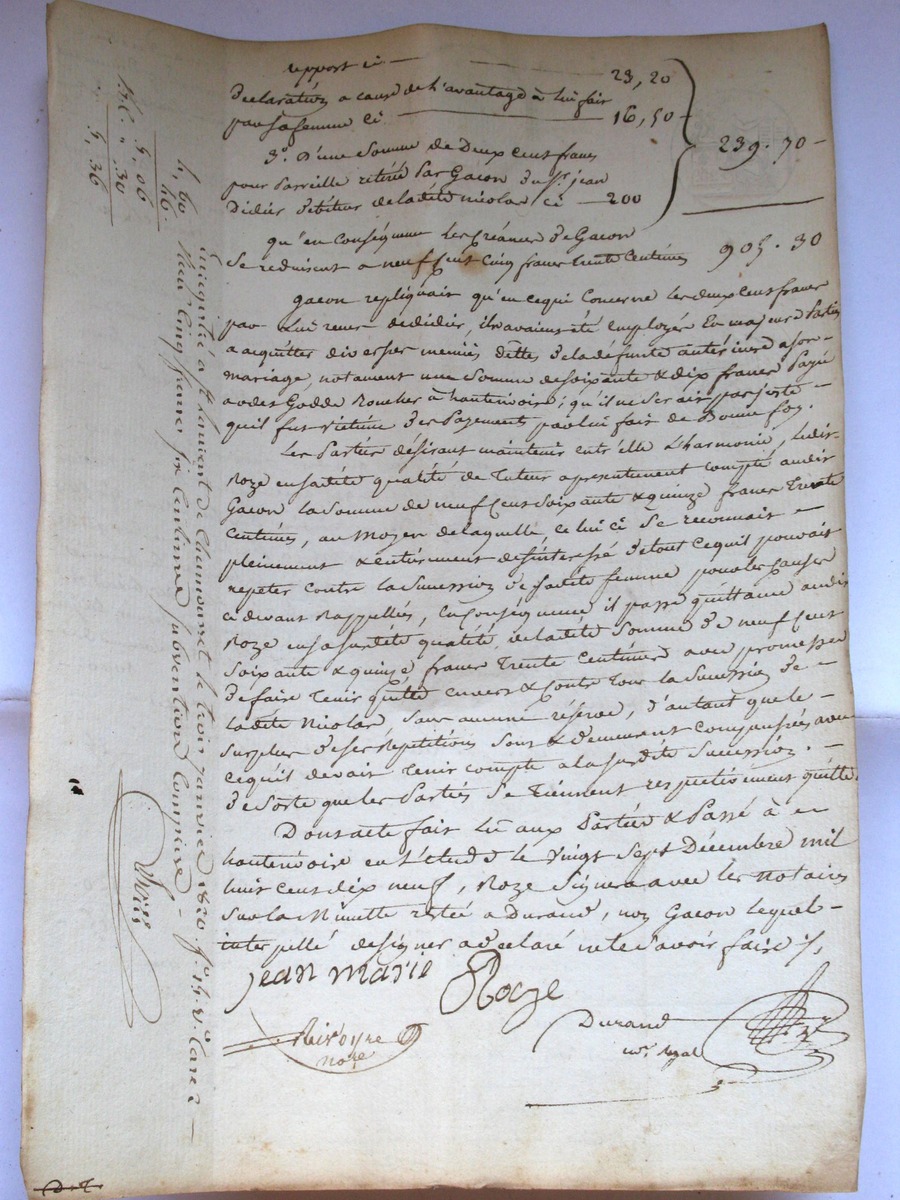 rapport ci — 23, 20
Declaration a cause de l'avantage à lui fait
par sa femme ci — 16, 50
239. 70 —
3°. D'une somme de Deux cent francs
pour pareille retirée par Gacon du Sr. jean
Didier débiteur de ladite Nicolas, ci — 200
qu'en Conséquence les Créances de Gacon
se reduisent a neuf cent cinq francs trente Centimes 905. 30
Gacon repliquait qu'en ce qui Concerne les deux cent francs
par lui reçus de Didier, ils avaient été employés en majeure Partie
a acquitter diverses menues dettes de la défunte antérieures a son
mariage, notament une somme de soixante & dix francs Payée
a Roucher à hauterivoire; qu'il ne serait pas juste —
qu'il fut victime des Payements par lui fait de Bonne foy.
Les Parties désirant maintenir entr'elle L'harmonie, ledit
Roze en sadite qualité de Tuteur a présentement compté audit
Gacon la Somme de neuf cent soixante & quinze francs Trente
Centimes, au moyen de laquelle, celui ci se reconnait —
pleinement & entièrement désintéressé de tout ce qu'il pouvait
repeter contre la Succession de sadite femme pour les causes
ci devant Rappellées, En Conséquence il passe quittance audit
Roze en sa susdite qualité de ladite Somme de neuf cent
soixante & quinze francs Trente centimes avec promesse
de faire Tenir quitte envers & contre Tous la Succession de —
ladite Nicolas sans aucune réserve, d'autant que le —
surplus de ses répétitions sont & demeurent compensées avec
ce qu'il devait Tenir compte a la susdite Succession. —
de sorte que les Parties se Tiennent respectivement quittes.
Dont acte fait Lu aux Parties & Passé à
hauterivoire en L'étude le vingt sept Décembre mil
huit cent dix neuf, Roze signera avec les notaires
sur la Minutte restée a Durand, non Gacon lequel —
interpellé de signer a déclaré ne le savoir faire
jean marie Roze
Rivoyre
no.re
Durand
n.re royal
Enregistré à St Laurent de Chamousset le trois janvier 1820. f° 15. V° Case 2 —
Reçu cinq francs six centimes subvention comprise —
4, 60
46.
5, 06
30
5, 36